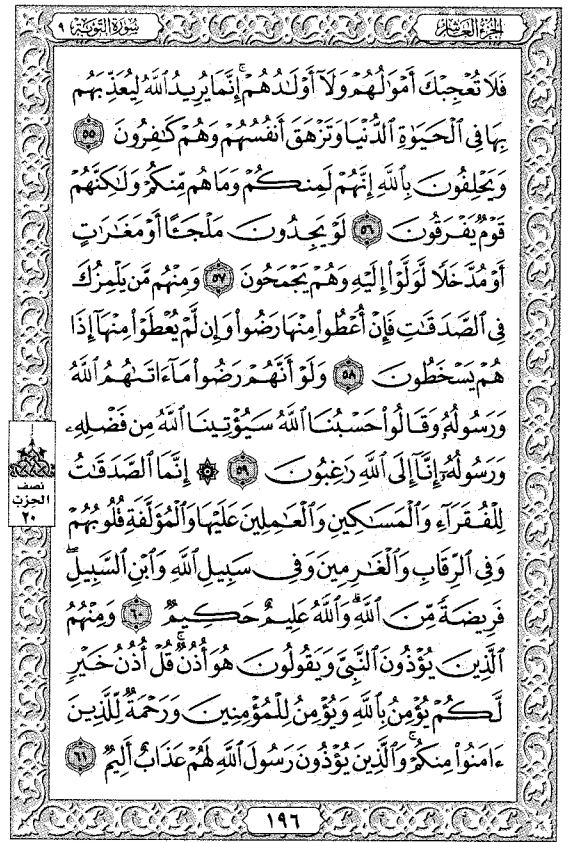 الجزء العاشر
سورة التوبة ٩
فَلَا تُعْجِبْكَ أَمْوَٰلُهُمْ وَلَآ أَوْلَٰدُهُمْ ۚ إِنَّمَا يُرِيدُ ٱللَّهُ لِيُعَذِّبَهُم
بِهَا فِى ٱلْحَيَوٰةِ ٱلدُّنْيَا وَتَزْهَقَ أَنفُسُهُمْ وَهُمْ كَٰفِرُونَ ٥٥
وَيَحْلِفُونَ بِٱللَّهِ إِنَّهُمْ لَمِنكُمْ وَمَا هُم مِّنكُمْ وَلَٰكِنَّهُمْ
قَوْمٌ يَفْرَقُونَ ٥٦ لَوْ يَجِدُونَ مَلْجَـًٔا أَوْ مَغَٰرَٰتٍ
أَوْ مُدَّخَلًا لَّوَلَّوْا۟ إِلَيْهِ وَهُمْ يَجْمَحُونَ ٥٧ وَمِنْهُم مَّن يَلْمِزُكَ
فِى ٱلصَّدَقَٰتِ فَإِنْ أُعْطُوا۟ مِنْهَا رَضُوا۟ وَإِن لَّمْ يُعْطَوْا۟ مِنْهَآ إِذَا
هُمْ يَسْخَطُونَ ٥٨ وَلَوْ أَنَّهُمْ رَضُوا۟ مَآ ءَاتَىٰهُمُ ٱللَّهُ
وَرَسُولُهُۥ وَقَالُوا۟ حَسْبُنَا ٱللَّهُ سَيُؤْتِينَا ٱللَّهُ مِن فَضْلِهِۦ
وَرَسُولُهُۥٓ إِنَّآ إِلَى ٱللَّهِ رَٰغِبُونَ ٥٩ ۞ إِنَّمَا ٱلصَّدَقَٰتُ
لِلْفُقَرَآءِ وَٱلْمَسَٰكِينِ وَٱلْعَٰمِلِينَ عَلَيْهَا وَٱلْمُؤَلَّفَةِ قُلُوبُهُمْ
وَفِى ٱلرِّقَابِ وَٱلْغَٰرِمِينَ وَفِى سَبِيلِ ٱللَّهِ وَٱبْنِ ٱلسَّبِيلِ ۖ
فَرِيضَةً مِّنَ ٱللَّهِ ۗ وَٱللَّهُ عَلِيمٌ حَكِيمٌ ٦٠ وَمِنْهُمُ
ٱلَّذِينَ يُؤْذُونَ ٱلنَّبِىَّ وَيَقُولُونَ هُوَ أُذُنٌ ۚ قُلْ أُذُنُ خَيْرٍ
لَّكُمْ يُؤْمِنُ بِٱللَّهِ وَيُؤْمِنُ لِلْمُؤْمِنِينَ وَرَحْمَةٌ لِّلَّذِينَ
ءَامَنُوا۟ مِنكُمْ ۚ وَٱلَّذِينَ يُؤْذُونَ رَسُولَ ٱللَّهِ لَهُمْ عَذَابٌ أَلِيمٌ ٦١
نصف
الحزب
٢٠
١٩٦